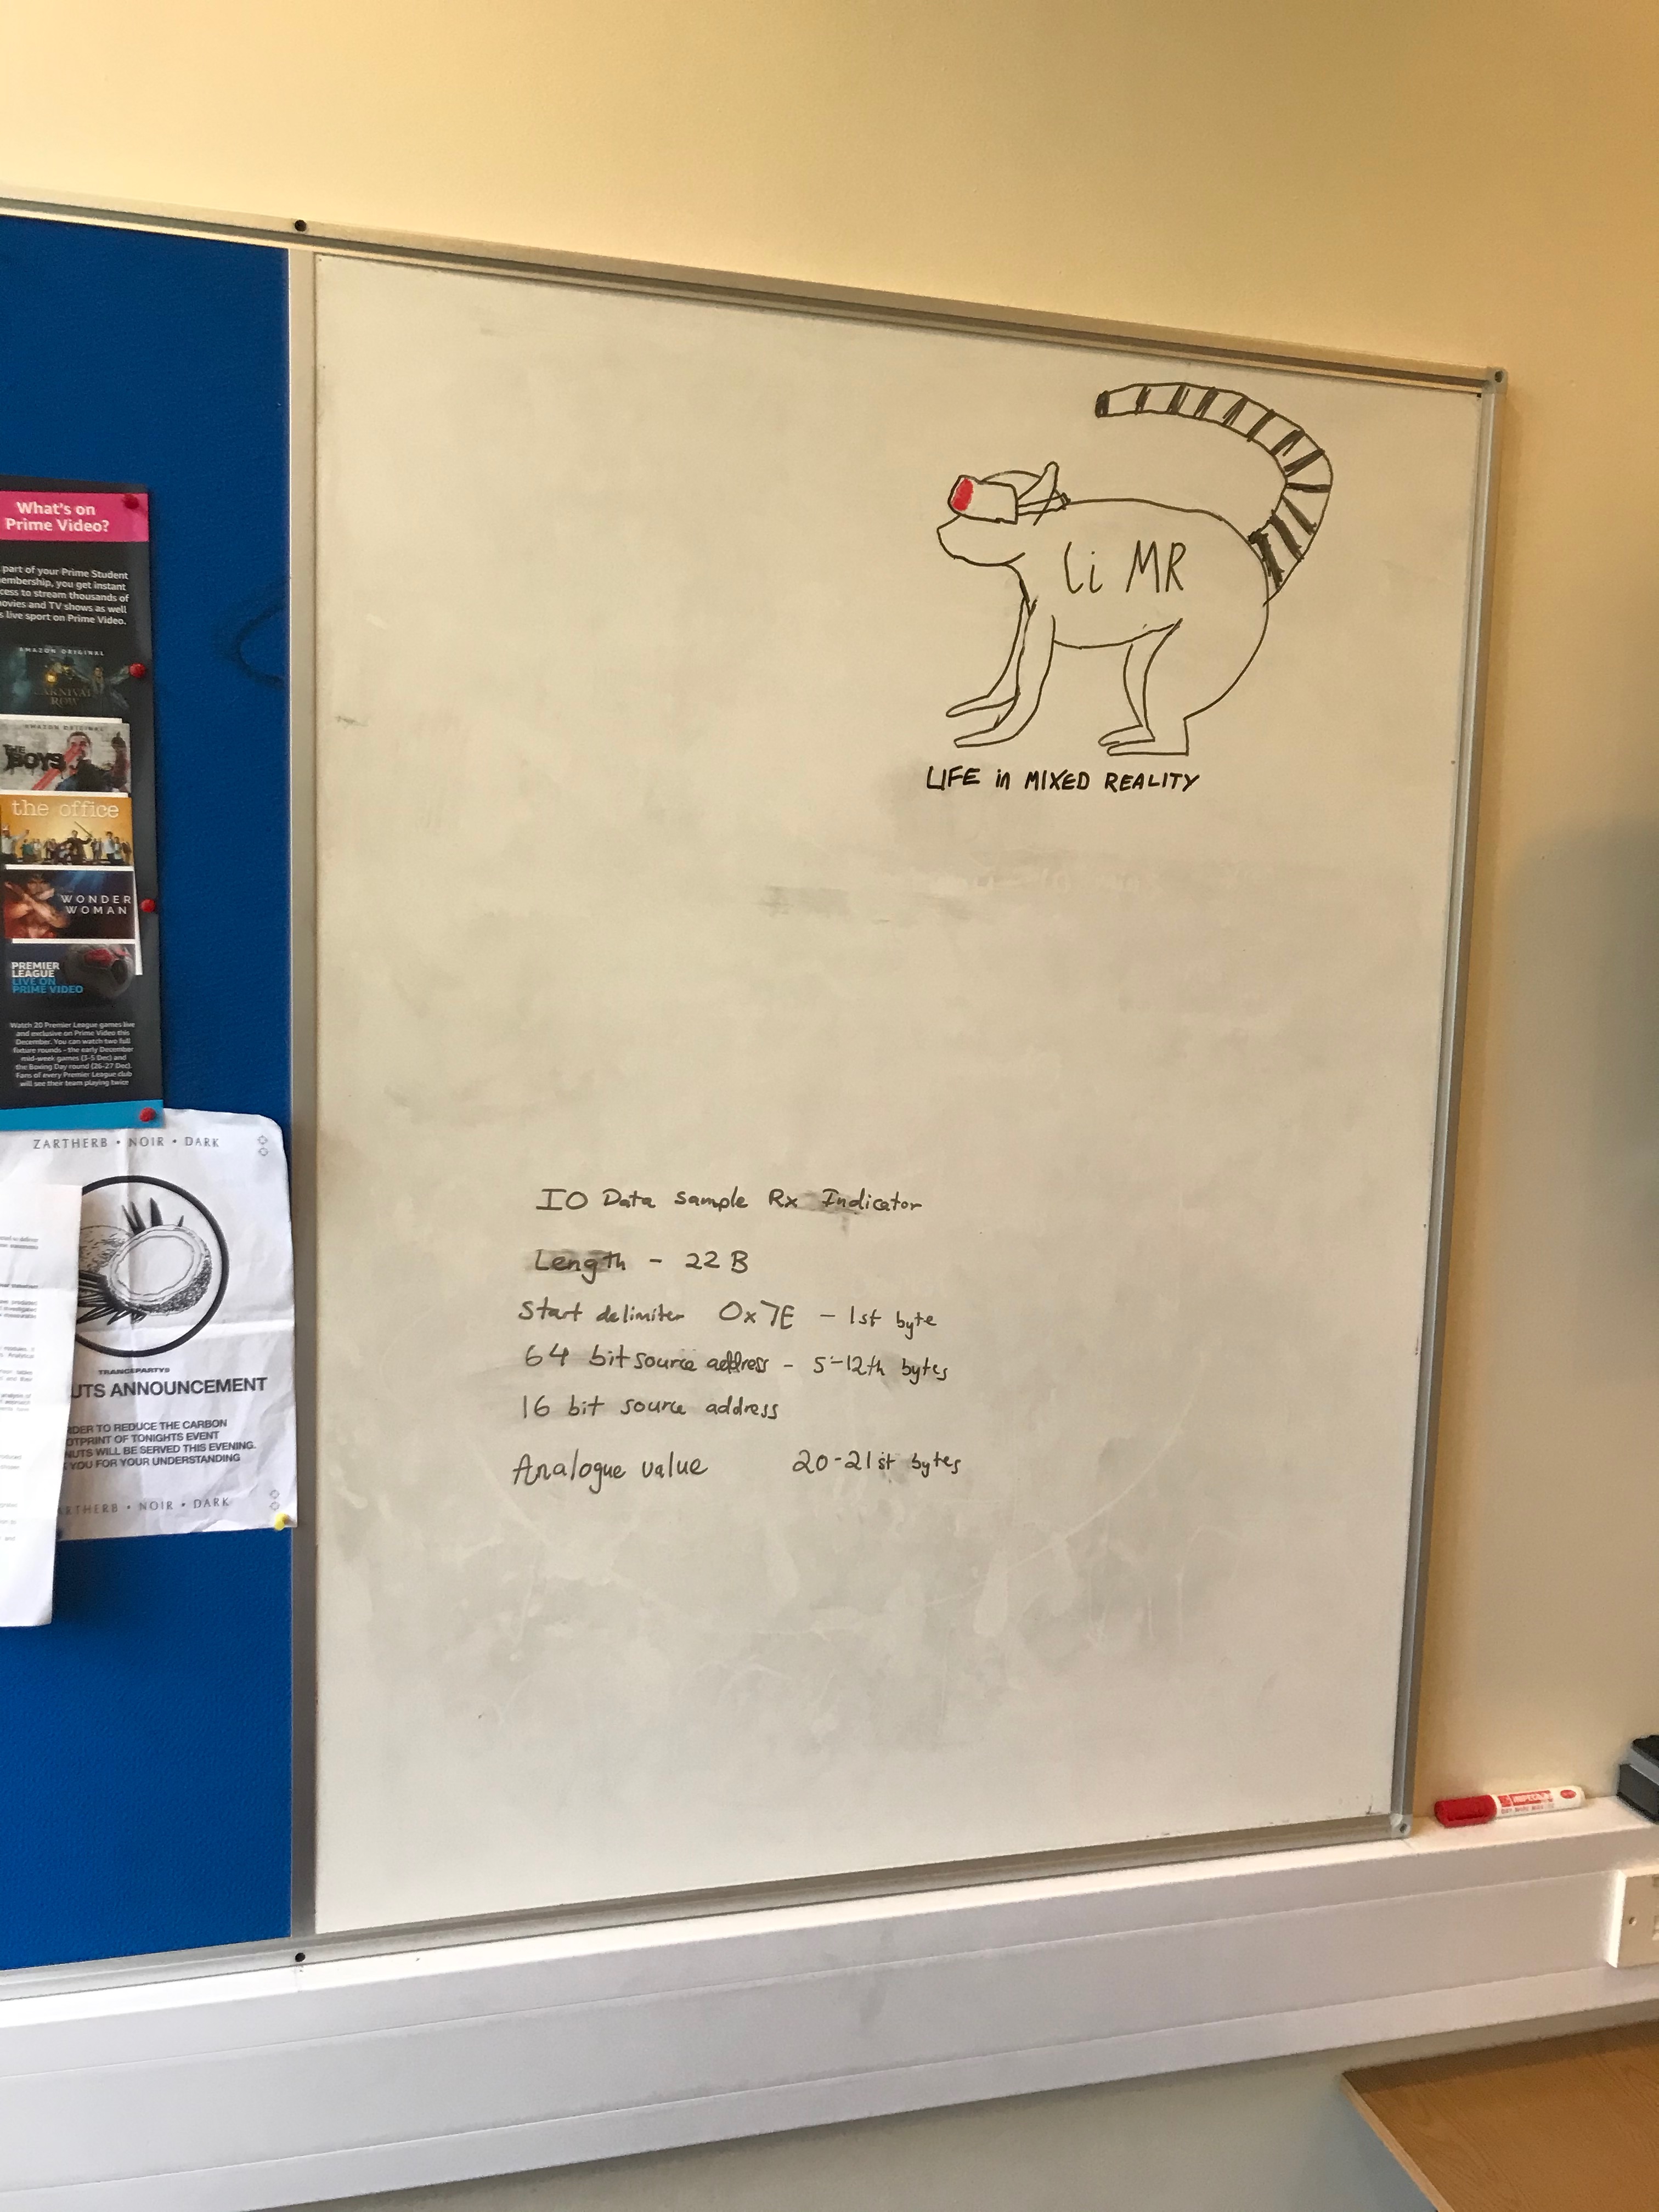 What's on
Prime Video?
part of your Prime Student
embership, you get instant
cess to stream thousands of
ovies and TV shows as well
s live sport on Prime Video.
AMAZON ORIGINAL
CARNIVAL
ROW
AMAZON ORIGINAL
THE
BOYS
the office
WONDER
WOMAN
PREMIER
LEAGUE
LIVE ON
PRIME VIDEO
Watch 20 Premier League games live
and exclusive on Prime Video this
December. You can watch two full
fixture rounds - the early December
mid-week games (3-5 Dec) and
the Boxing Day round (26-27 Dec).
Fans of every Premier League club
will see their team playing twice
ZARTHERB • NOIR • DARK
TRANCEPARTY®
UTS ANNOUNCEMENT
RDER TO REDUCE THE CARBON
OTPRINT OF TONIGHTS EVENT
NUTS WILL BE SERVED THIS EVENING.
YOU FOR YOUR UNDERSTANDING
ARTHERB • NOIR • DARK
Li MR
LIFE in MIXED REALITY
IO Data Sample Rx Indicator
Length - 22 B
Start delimiter 0x7E - 1st byte
64 bit source address - 5-12th bytes
16 bit source address
Analogue value 20-21st bytes